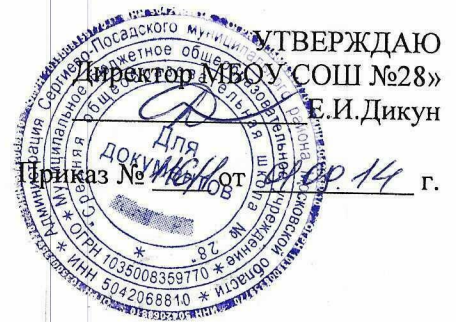 УТВЕРЖДАЮ
Директор МБОУ СОШ №28»
Е.И.Дикун
Приказ № от 14 г.
Администрация Сергиево-Посадского муниципального района Московской области
* Муниципальное бюджетное общеобразовательное учреждение
"Средняя общеобразовательная школа № 28" *
* ОГРН 1035008359770 * ИНН 5042068810 *
Для
документов